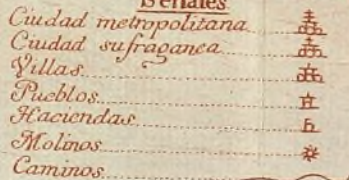 Señales
Ciudad metropolitana
Ciudad sufraganea
Villas
Pueblos
Haciendas
Molinos
Caminos